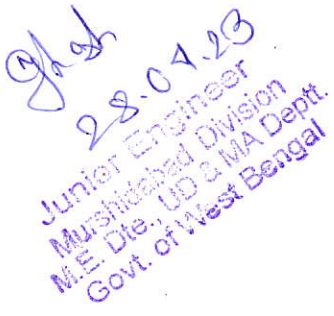 28.04.23
Junior Engineer
Murshidabad Division
M.E. Dte., UD & MA Deptt.
Govt. of West Bengal